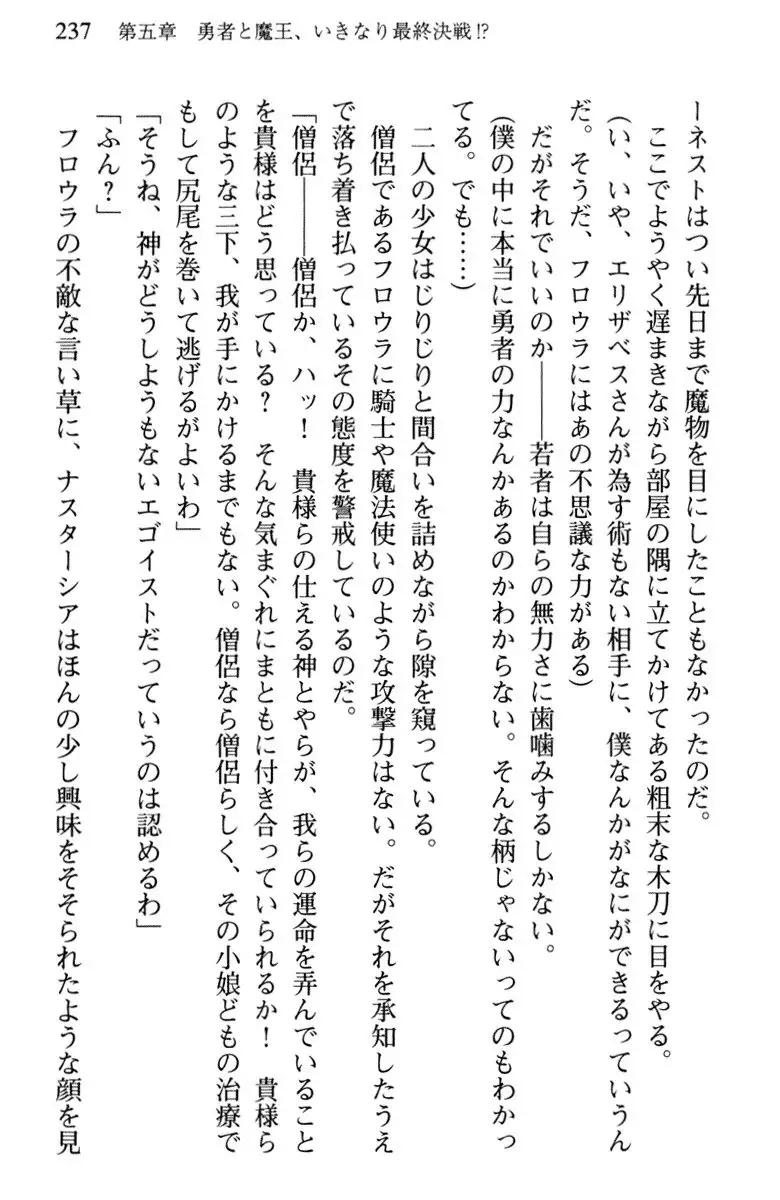 237　第五章　勇者と魔王、いきなり最終決戦!?
ーネストはつい先日まで魔物を目にしたこともなかったのだ。
　ここでようやく遅まきながら部屋の隅に立てかけてある粗末な木刀に目をやる。
（い、いや、エリザベスさんが為す術もない相手に、僕なんかがなにができるっていうん
だ。そうだ、フロウラにはあの不思議な力がある）
　だがそれでいいのか――若者は自らの無力さに歯噛みするしかない。
（僕の中に本当に勇者の力なんかあるのかわからない。そんな柄じゃないってのもわかっ
てる。でも……）
　二人の少女はじりじりと間合いを詰めながら隙を窺っている。
　僧侶であるフロウラに騎士や魔法使いのような攻撃力はない。だがそれを承知したうえ
で落ち着き払っているその態度を警戒しているのだ。
「僧侶――僧侶か、ハッ！　貴様らの仕える神とやらが、我らの運命を弄んでいること
を貴様はどう思っている？　そんな気まぐれにまともに付き合っていられるか！　貴様ら
のような三下、我が手にかけるまでもない。僧侶なら僧侶らしく、その小娘どもの治療で
もして尻尾を巻いて逃げるがよいわ」
「そうね、神がどうしようもないエゴイストだっていうのは認めるわ」
「ふん？」
　フロウラの不敵な言い草に、ナスターシアはほんの少し興味をそそられたような顔を見